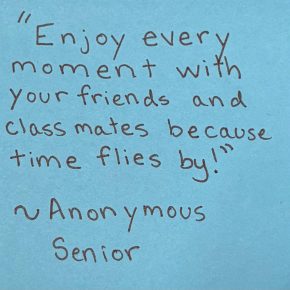 "Enjoy every
moment with
your friends and
class mates because
time flies by!"
~Anonymous
Senior